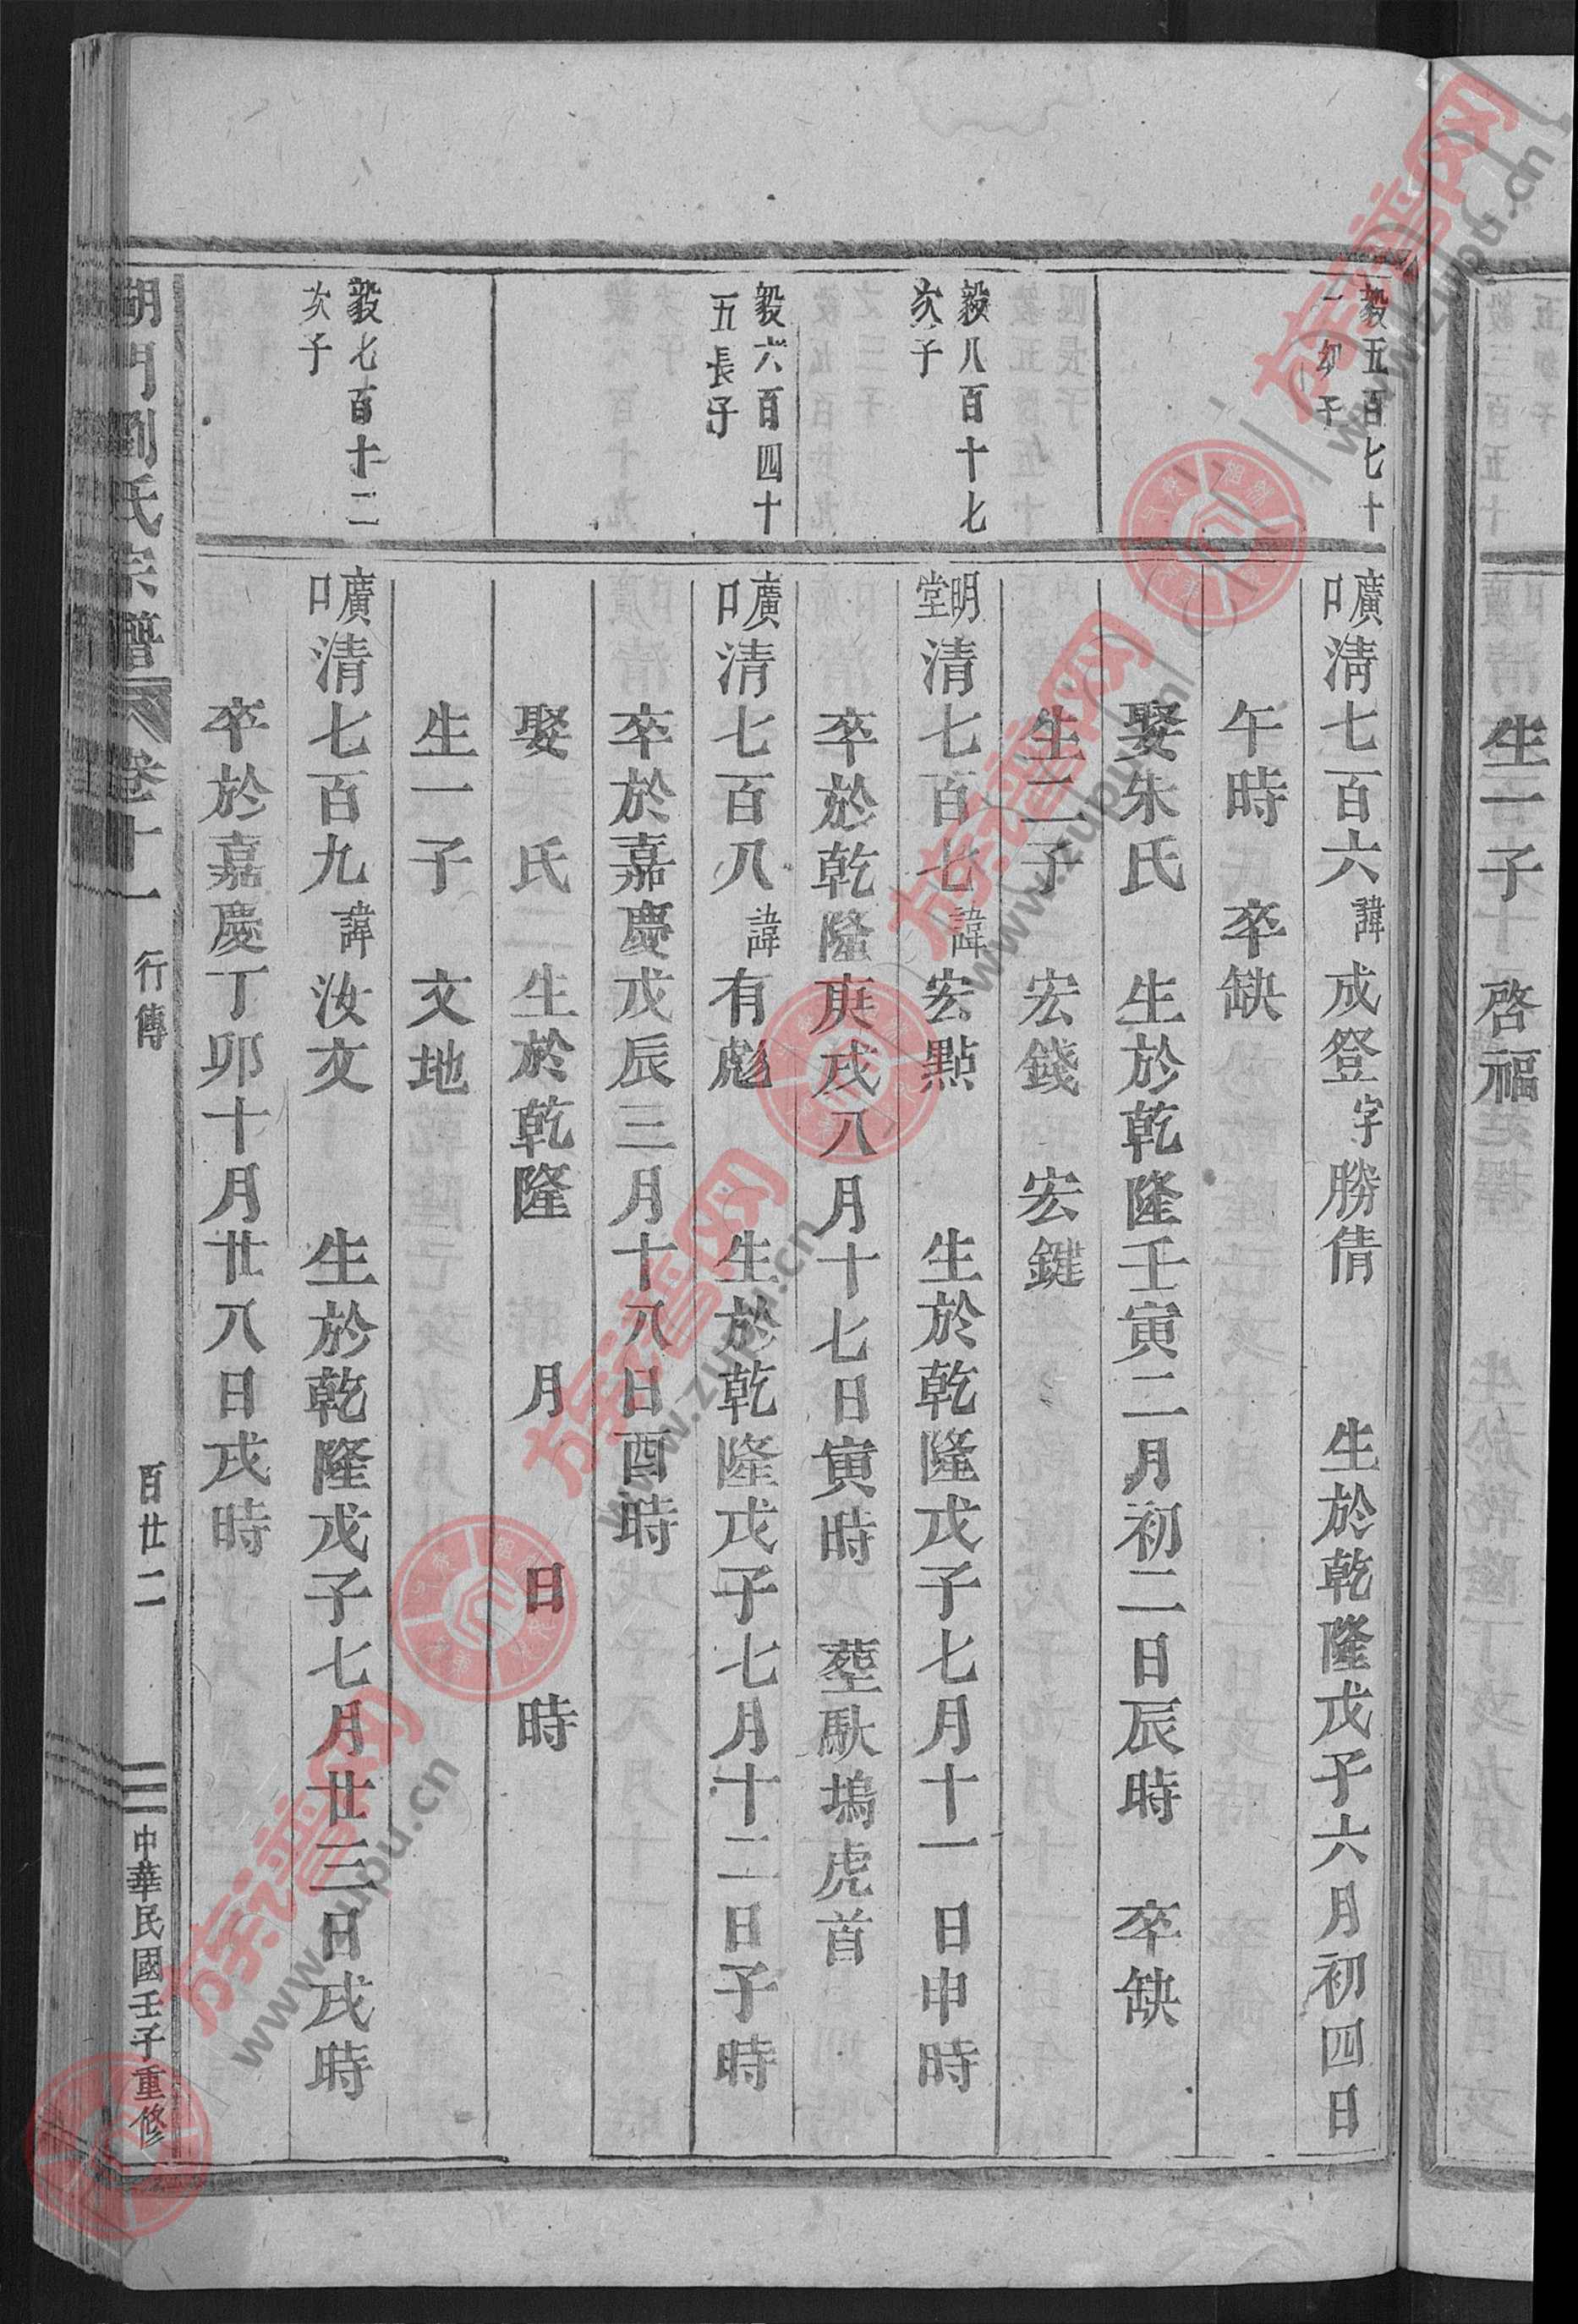 生二子 啓福
毅五百七十
一幼子
廣口清七百六諱成登字勝倩 生於乾隆戊子六月初四日
午時 卒缺
娶朱氏 生於乾隆壬寅二月初二日辰時 卒缺
生二子 宏錢 宏鍵
毅八百十七
次子
明堂清七百七諱宏點 生於乾隆戊子七月十一日申時
卒於乾隆庚戌八月十七日寅時 葬馱塢虎首
毅六百四十
五長子
廣口清七百八諱有彪 生於乾隆戊子七月十二日子時
卒於嘉慶戊辰三月十八日酉時
娶 氏 生於乾隆 月 日 時
生一子 文地
毅七百十二
次子
廣口清七百九諱汝文 生於乾隆戊子七月廿三日戌時
卒於嘉慶丁卯十月廿八日戌時
湖門劉氏宗譜 卷十一 行傳 百廿二 中華民國壬子重修
族譜网
www.zupu.cn
族譜网
www.zupu.cn
族譜网
www.zupu.cn
族譜网
www.zupu.cn